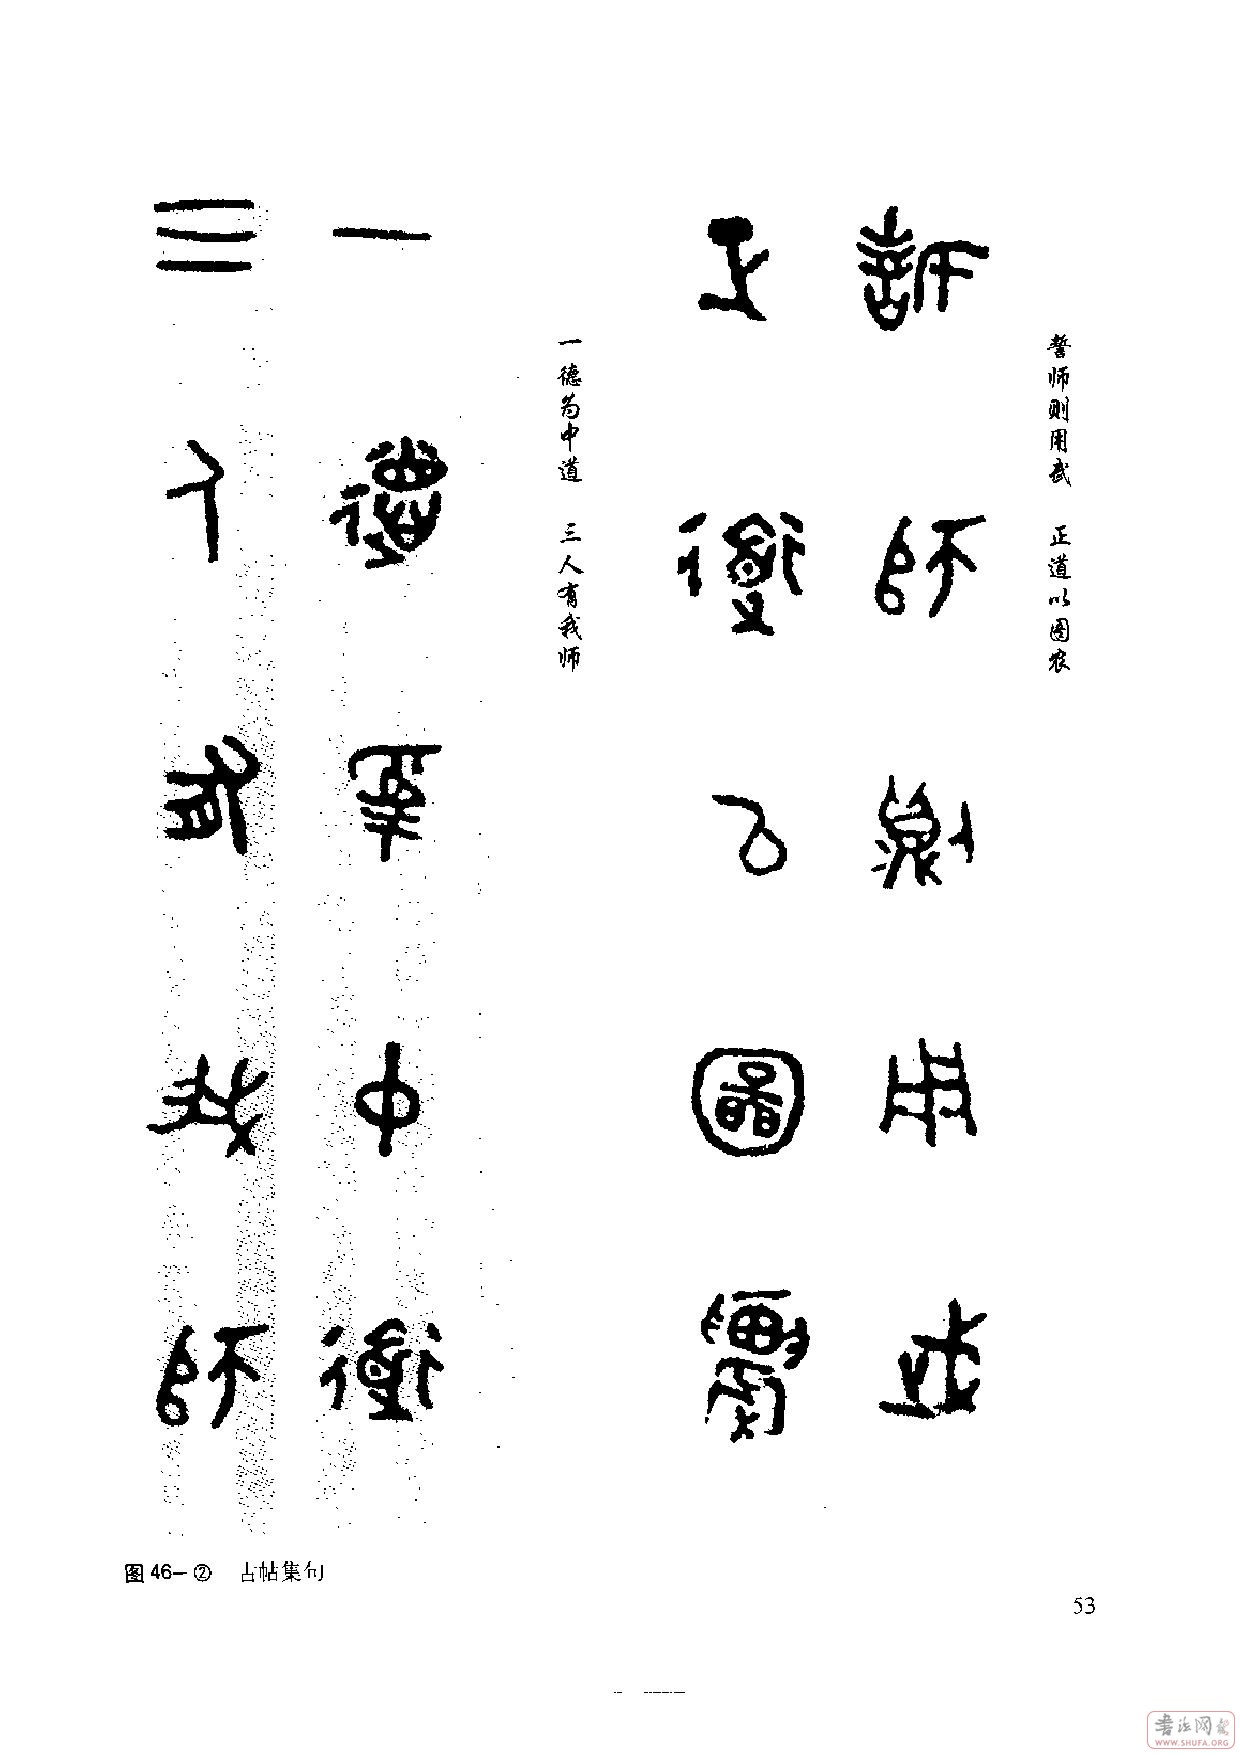 誓师则用武 正道以图农
誓师则用武
正道以图农
一德为中道 三人有我师
一德为中道
三人有我师
图46-② 古帖集句
53
书法网
WWW.SHUFA.ORG